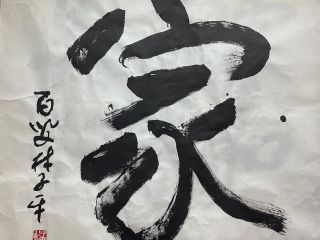 家
百岁林子平